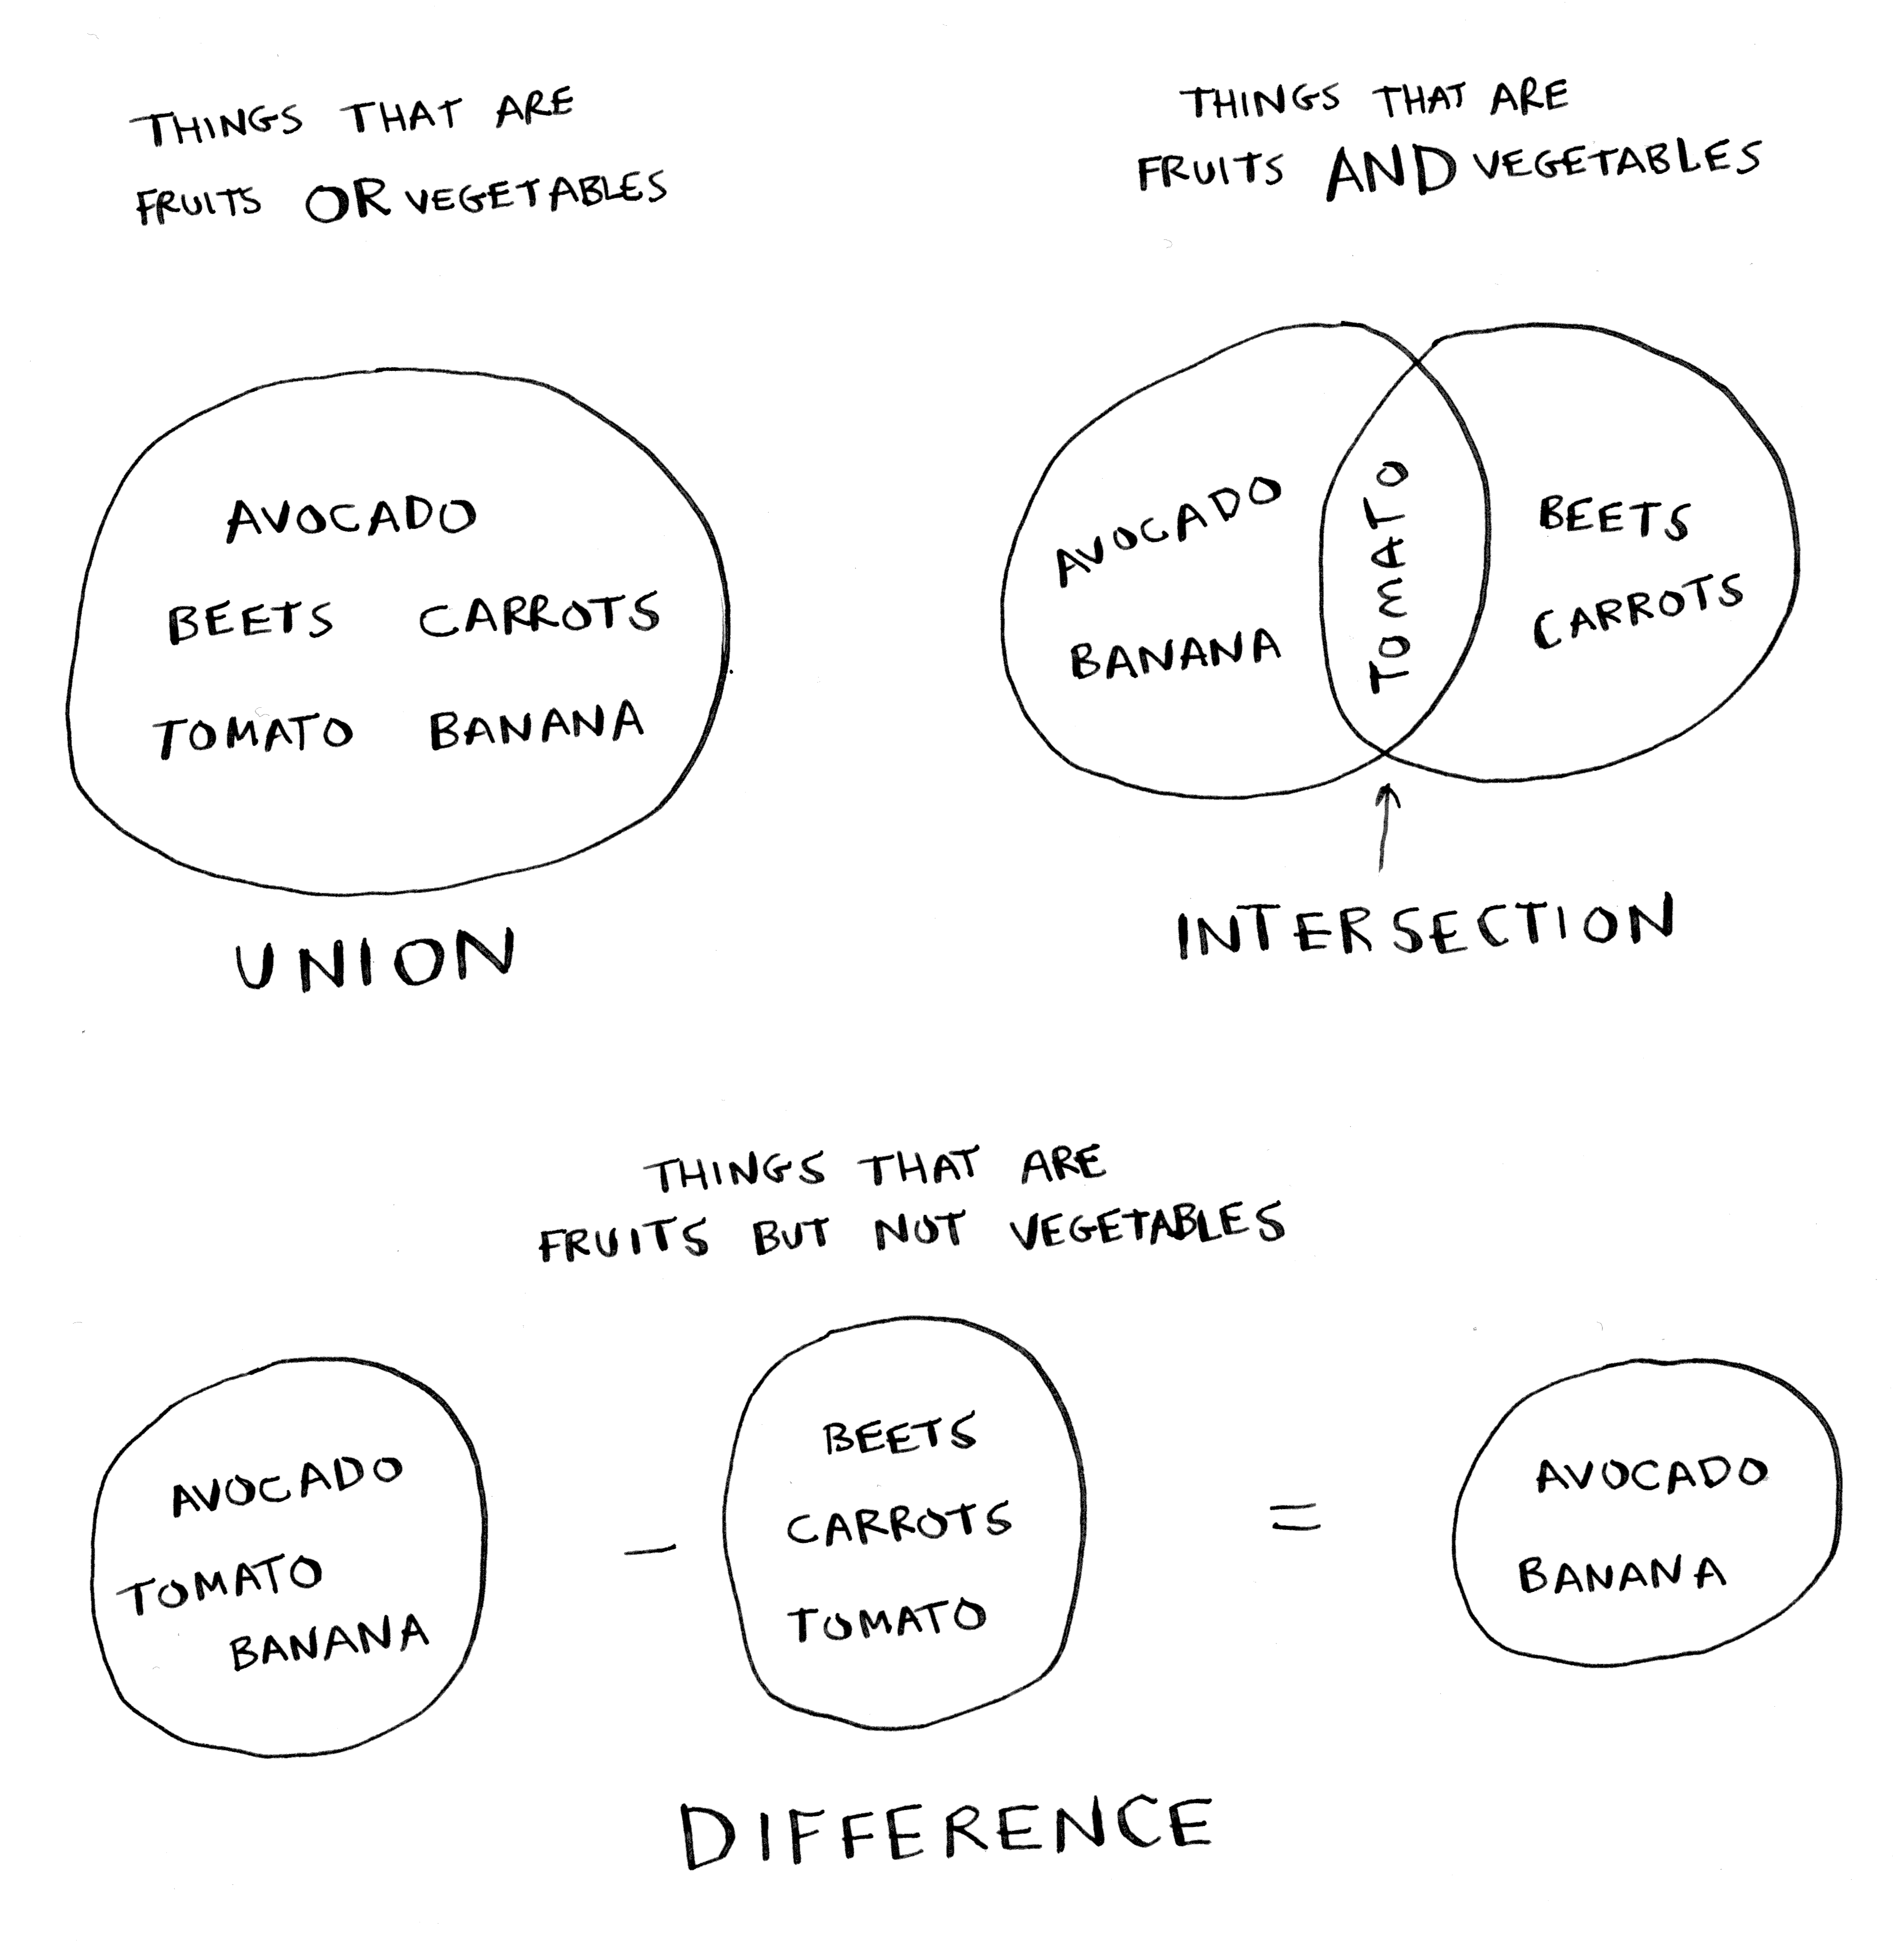 THINGS THAT ARE
FRUITS OR VEGETABLES
AVOCADO
BEETS CARROTS
TOMATO BANANA
UNION
THINGS THAT ARE
FRUITS AND VEGETABLES
AVOCADO
BANANA
TOMATO
BEETS
CARROTS
INTERSECTION
THINGS THAT ARE
FRUITS BUT NOT VEGETABLES
AVOCADO
TOMATO
BANANA
–
BEETS
CARROTS
TOMATO
=
AVOCADO
BANANA
DIFFERENCE